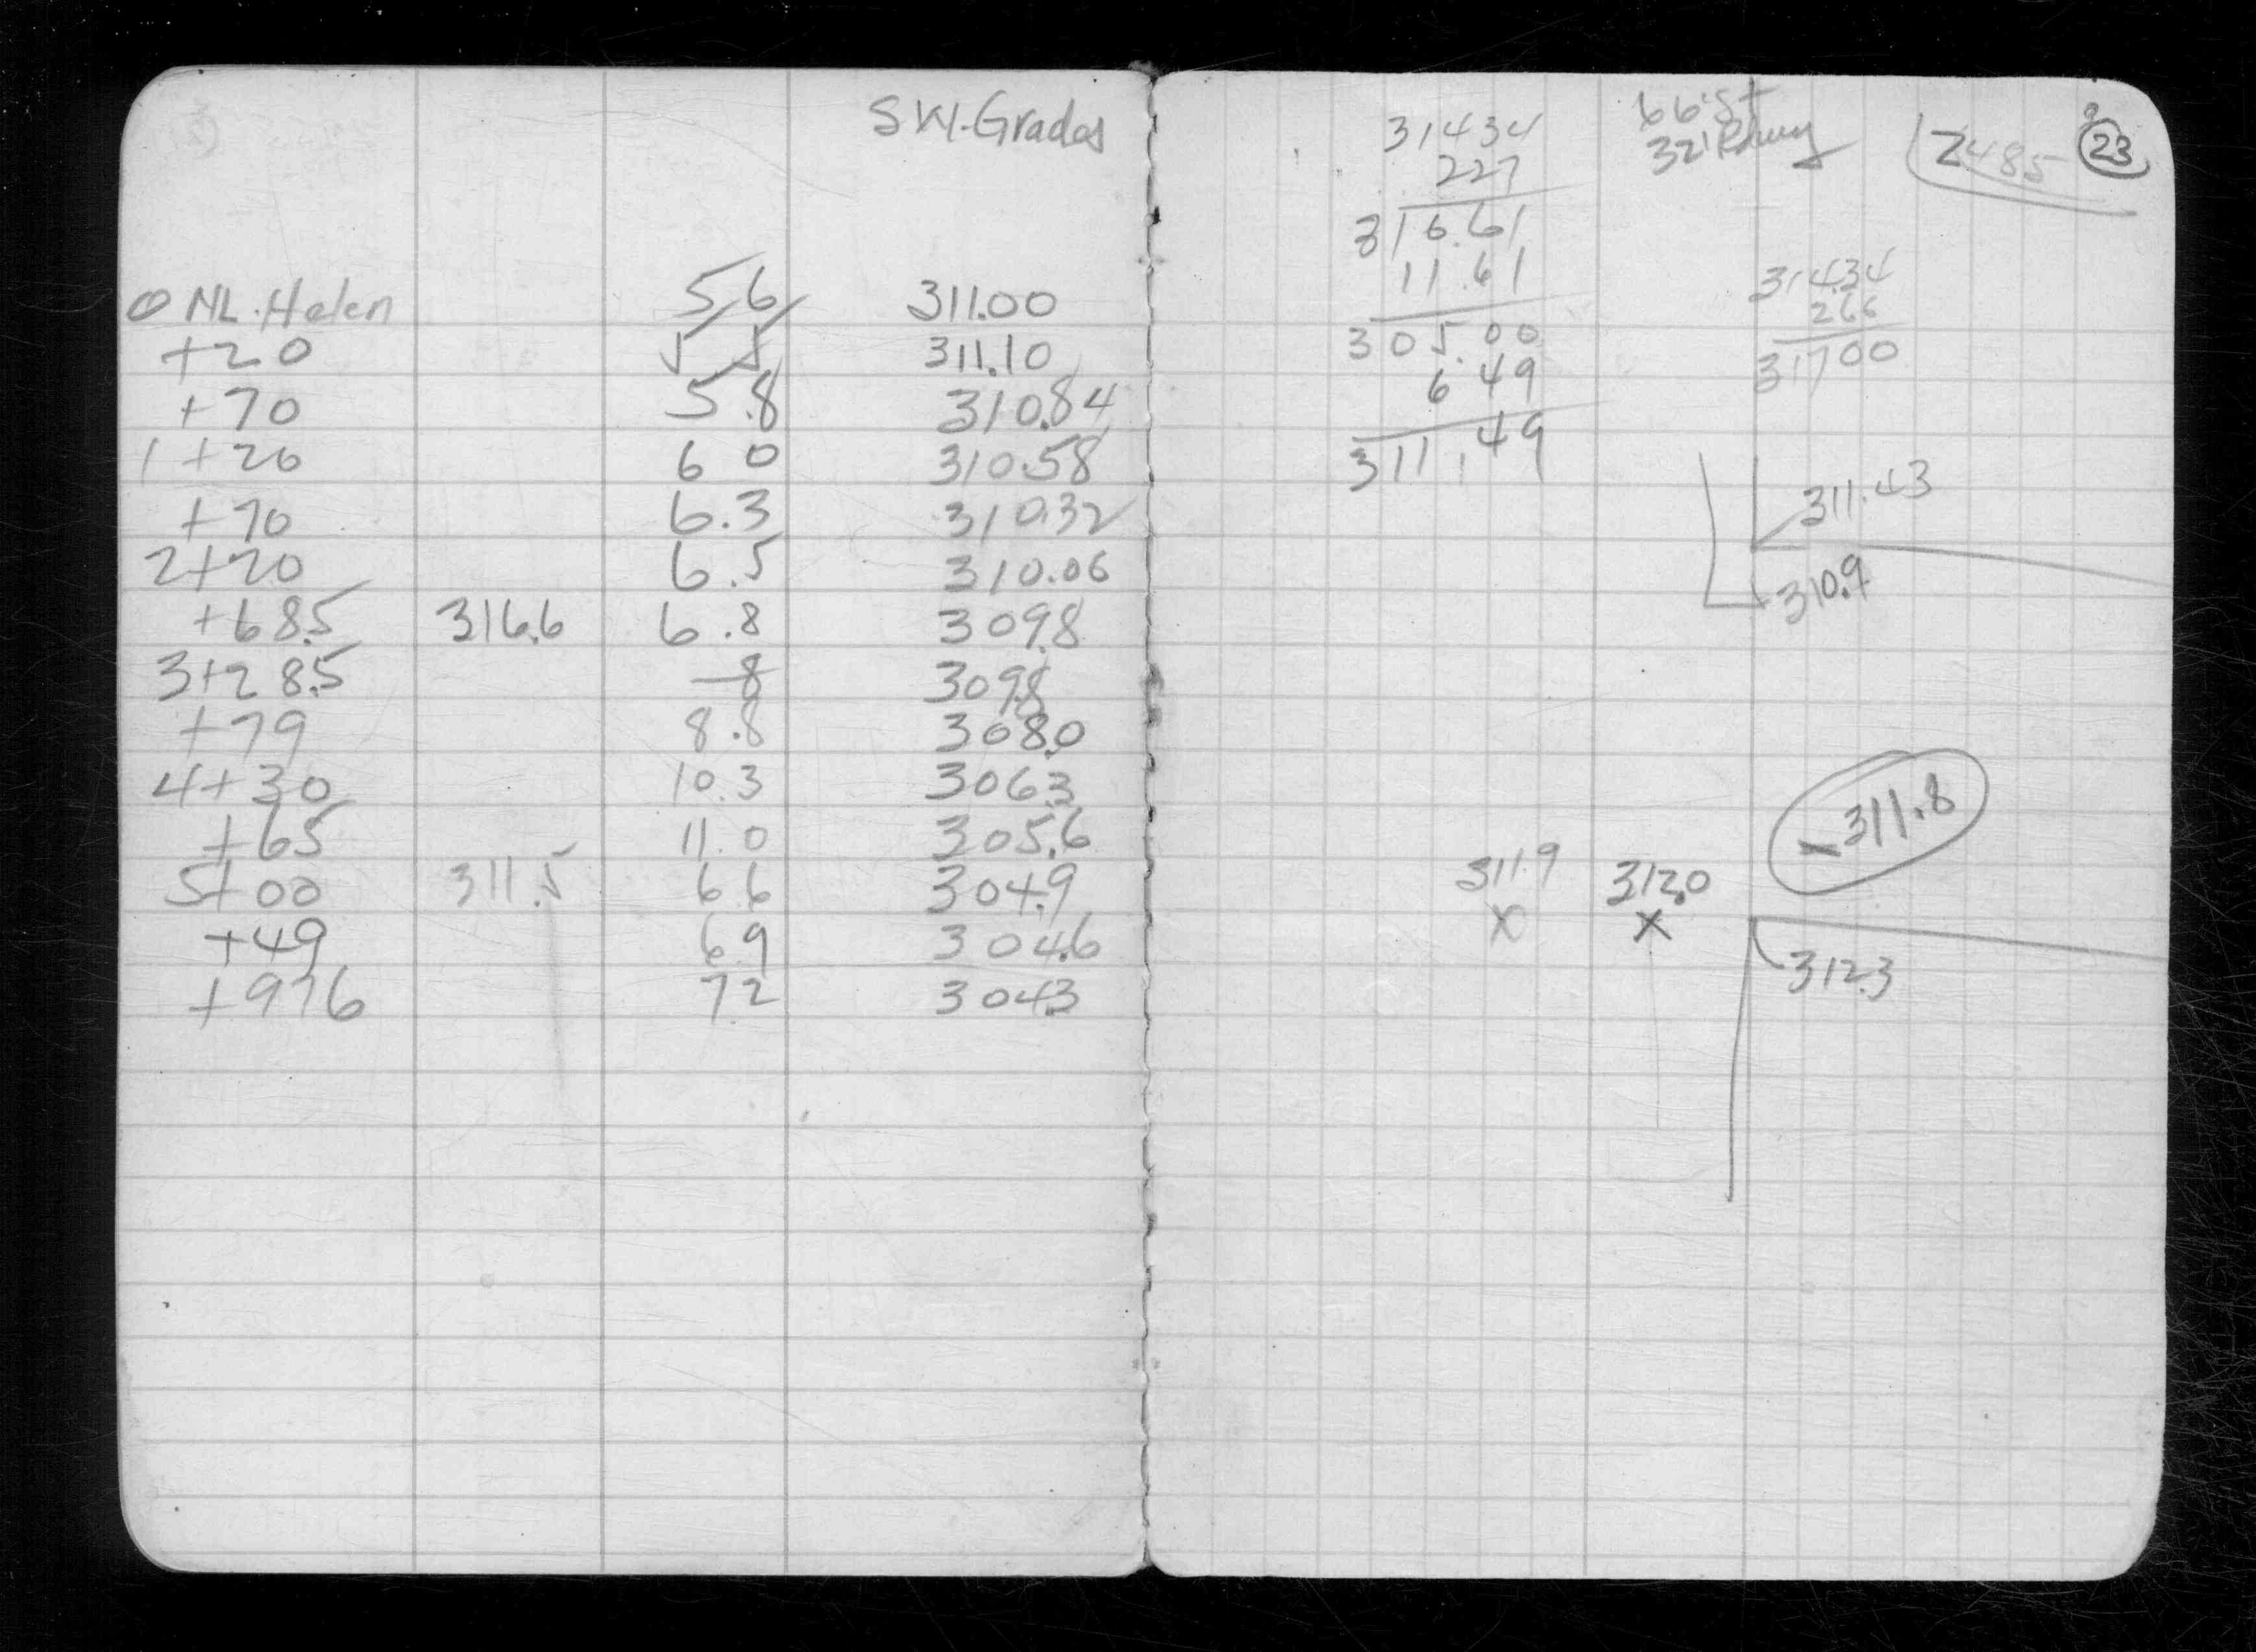 S W. Grades
0 NL. Helen 5.6 311.00
+20 5 5 311.10
+70 5.8 310.84
1+20 6 0 310.58
+70 6.3 310.32
2+20 6.5 310.06
+68.5 316.6 6.8 309.8
3+28.5 8 309.8
+79 8.8 308.0
4+30 10.3 306.3
+65 11.0 305.6
5+00 311.5 6 6 304.9
+49 6 9 304.6
+976 7.2 304.3
23
2485
66' St
32' Rdwy
31434
227
316.61
11.61
305.00
6.49
311.49
314.34
266
31700
311.43
310.9
-311.8
311.9 312.0
X X
312.3